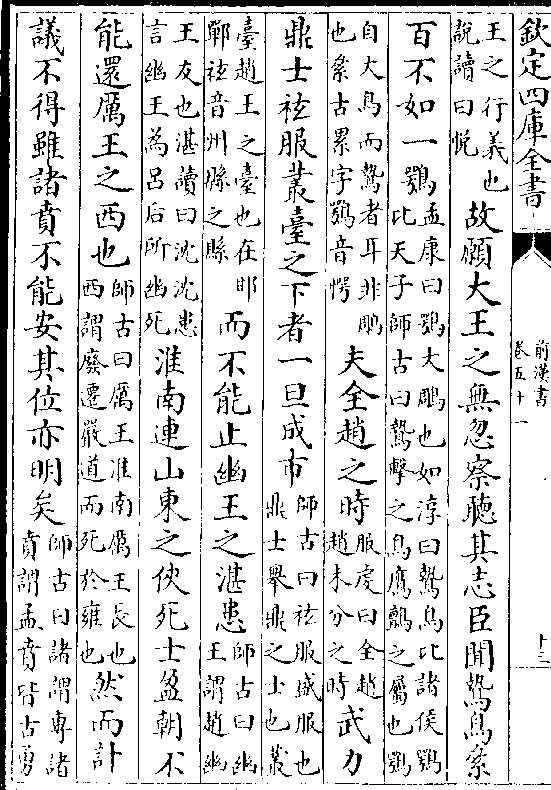 欽定四庫全書
前漢書
卷五十一
十三
王之行義也
説讀曰悦
故願大王之無忽察聽其志臣聞鷙鳥絫
百不如一鶚
孟康曰鶚大鵰也如淳曰鷙鳥比諸侯鶚
比天子師古曰鷙擊之鳥鷹鸇之屬也鶚
自大鳥而鷙者耳非鵰
也絫古累字鶚音愕
夫全趙之時
服虔曰全趙
趙未分之時
武力
鼎士袨服叢臺之下者一旦成市
師古曰袨服盛服也
鼎士舉鼎之士也叢
臺趙王之臺也在邯
鄲袨音州縣之縣
而不能止幽王之湛患
師古曰幽
王謂趙幽
王友也湛讀曰沈沈患
言幽王為呂后所幽死
淮南連山東之俠死士盈朝不
能還厲王之西也
師古曰厲王淮南厲王長也
西謂廢遷嚴道而死於雍也
然而計
議不得雖諸賁不能安其位亦明矣
師古曰諸謂專諸
賁謂孟賁皆古勇